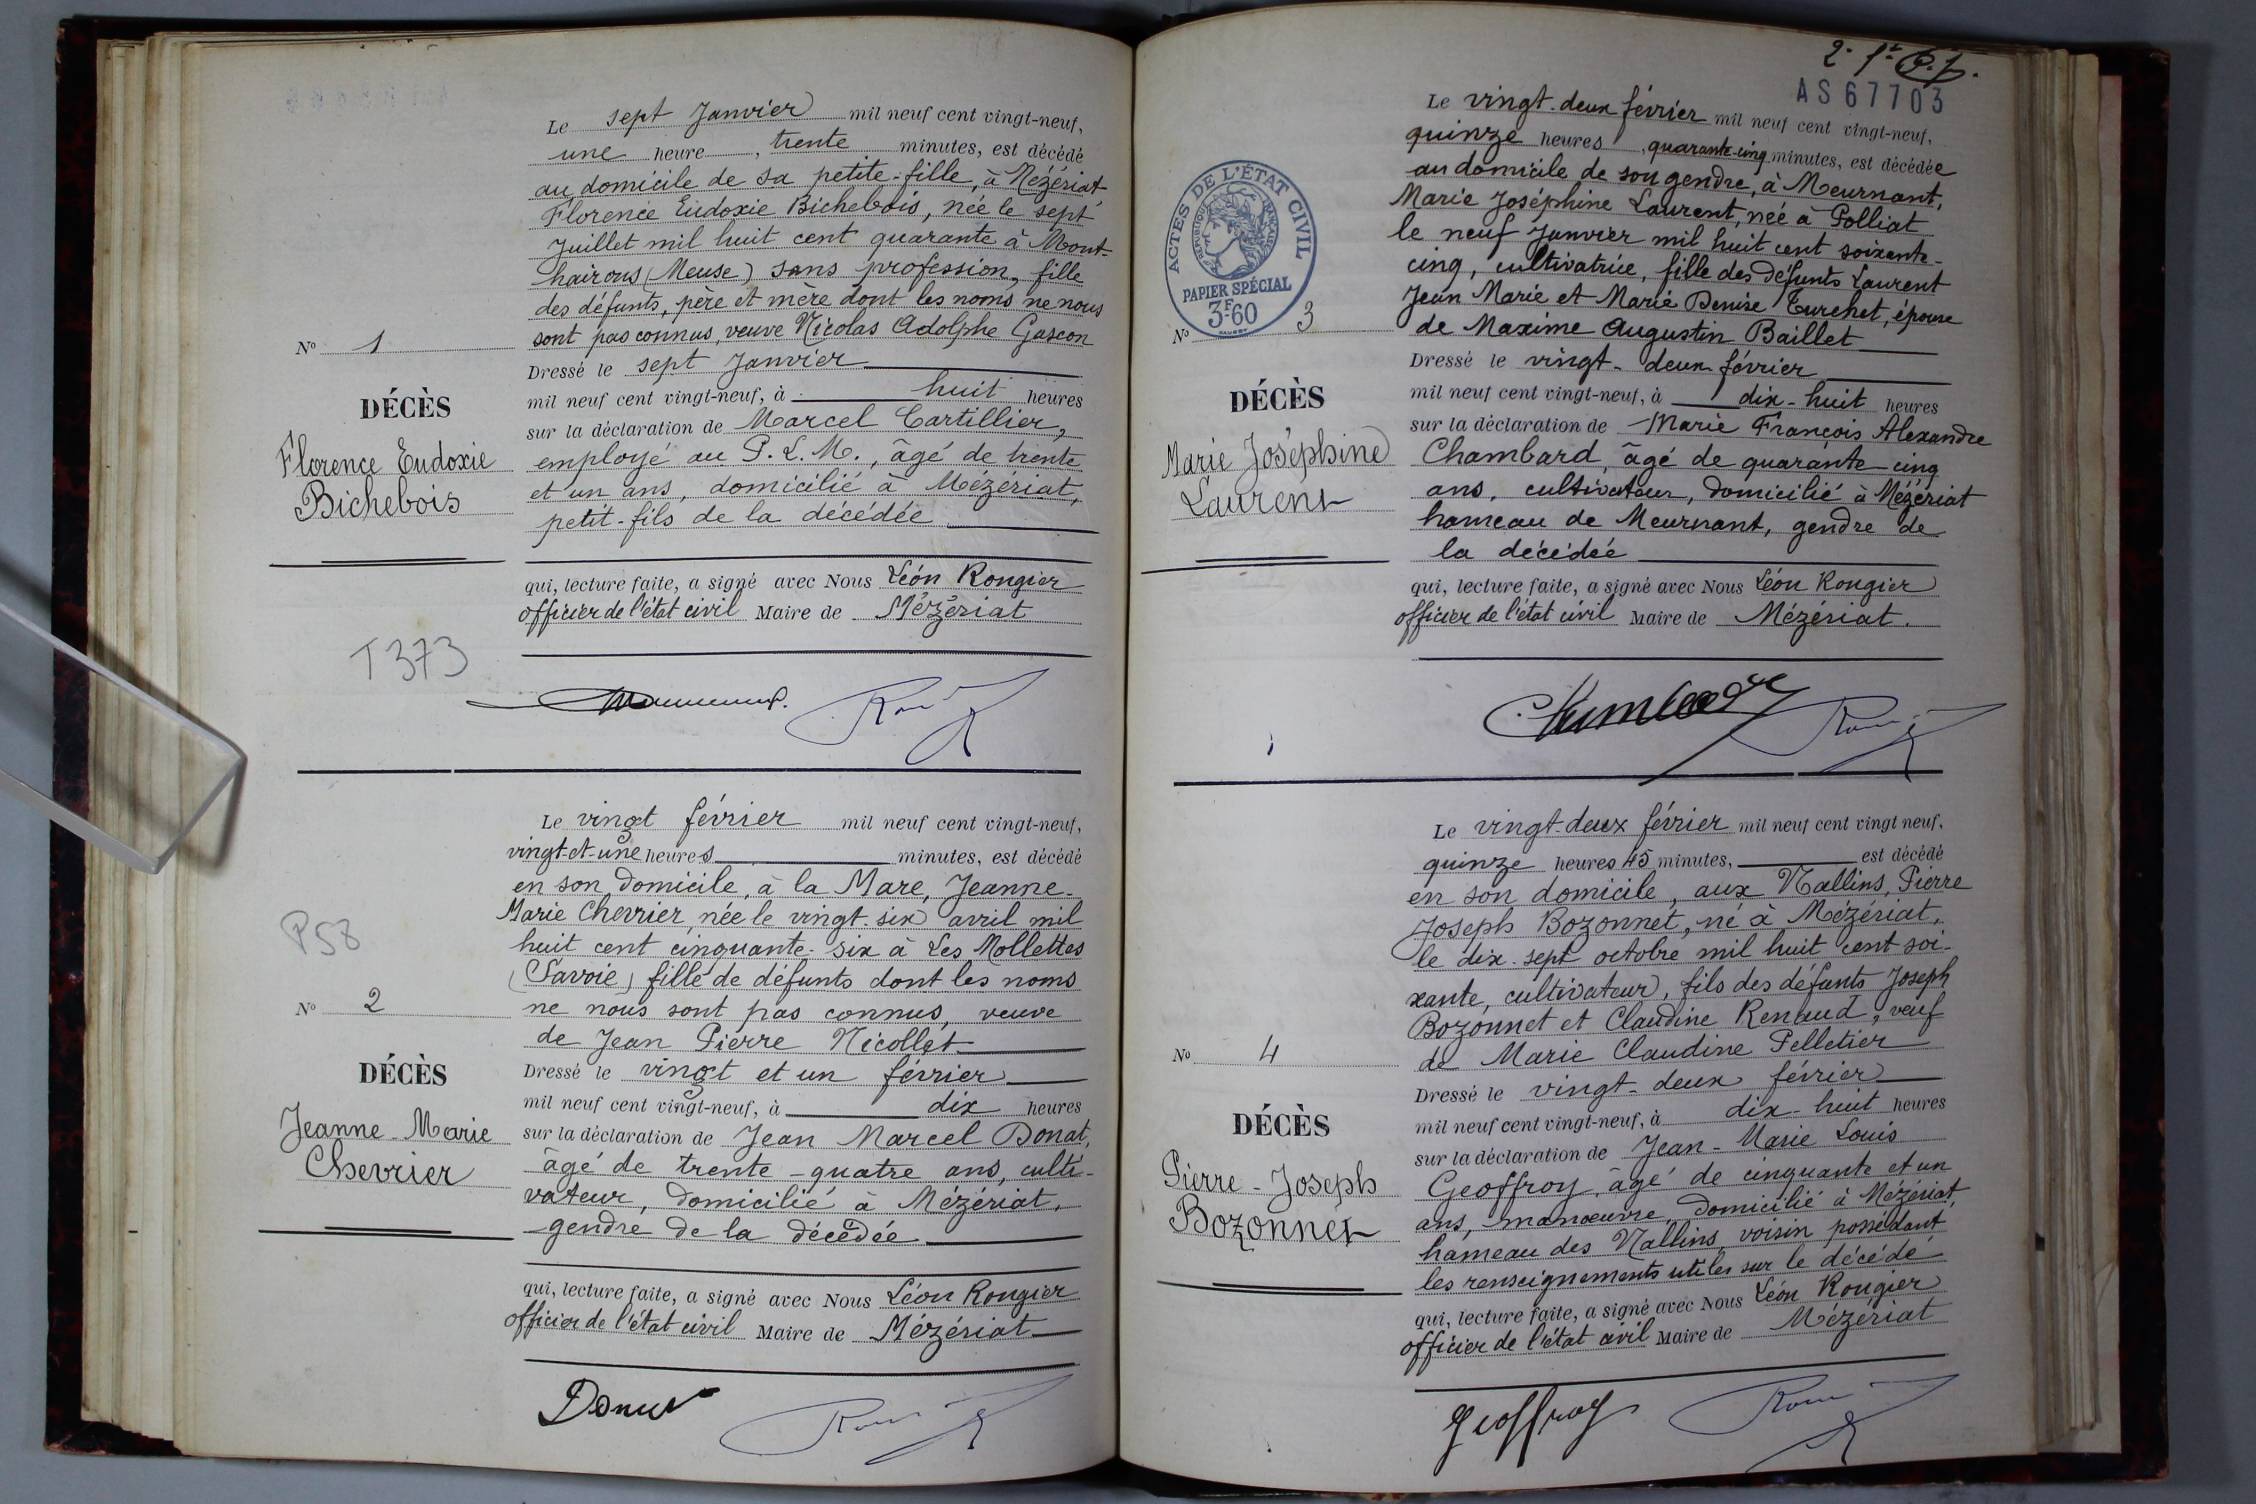 Le sept Janvier mil neuf cent vingt-neuf,
une heure, trente minutes, est décédé
au domicile de sa petite-fille, à Mézériat
Florence Eudoxie Bichebois, née le sept
Juillet mil huit cent quarante à Mont-
hairons (Meuse) sans profession, fille
des défunts, père et mère dont les noms ne nous
sont pas connus, veuve Nicolas Adolphe Gascon
Nº 1
Dressé le sept Janvier
mil neuf cent vingt-neuf, à huit heures
DÉCÈS
sur la déclaration de Marcel Cartillier,
Florence Eudoxie
Bichebois
employé au P.L.M., âgé de trente
et un ans, domicilié à Mézériat,
petit-fils de la décédée
qui, lecture faite, a signé avec Nous Léon Rougier
officier de l'état civil Maire de Mézériat
T373
Le vingt février mil neuf cent vingt-neuf,
vingt-et-une heures minutes, est décédé
en son domicile, à la Mare, Jeanne-
Marie Chevrier, née le vingt-six avril mil
huit cent cinquante-six à Les Mollettes
(Savoie) fille de défunts dont les noms
ne nous sont pas connus, veuve
de Jean Pierre Nicollet
P58
Nº 2
Dressé le vingt et un février
mil neuf cent vingt-neuf, à dix heures
DÉCÈS
Jeanne Marie
Chevrier
sur la déclaration de Jean Marcel Donat,
âgé de trente-quatre ans, culti-
vateur, domicilié à Mézériat,
gendre de la décédée
qui, lecture faite, a signé avec Nous Léon Rougier
officier de l'état civil Maire de Mézériat
Donat
AS67703
Le vingt-deux février mil neuf cent vingt-neuf,
quinze heures, quarante-cinq minutes, est décédée
au domicile de son gendre, à Meurnant,
Marie Joséphine Laurent, née à Polliat
le neuf Janvier mil huit cent soixante-
cinq, cultivatrice, fille des défunts Laurent
Jean Marie et Marie Denise Turchet, épouse
de Maxime Augustin Baillet
ACTES DE L'ÉTAT CIVIL
RÉPUBLIQUE FRANÇAISE
PAPIER SPÉCIAL
3F60
Nº 3
Dressé le vingt-deux février
mil neuf cent vingt-neuf, à dix-huit heures
DÉCÈS
Marie Joséphine
Laurent
sur la déclaration de Marie François Alexandre
Chambard, âgé de quarante-cinq
ans, cultivateur, domicilié à Mézériat
hameau de Meurnant, gendre de
la décédée
qui, lecture faite, a signé avec Nous Léon Rougier
officier de l'état civil Maire de Mézériat.
Le vingt-deux février mil neuf cent vingt neuf,
quinze heures 45 minutes, est décédé
en son domicile, aux Nallins, Pierre
Joseph Bozonnet, né à Mézériat,
le dix-sept octobre mil huit cent soi-
xante, cultivateur, fils des défunts Joseph
Bozonnet et Claudine Renaud, veuf
de Marie Claudine Pelletier
Nº 4
Dressé le vingt-deux février
mil neuf cent vingt-neuf, à dix-huit heures
DÉCÈS
Pierre-Joseph
Bozonnet
sur la déclaration de Jean-Marie Louis
Geoffroy, âgé de cinquante et un
ans, manœuvre, domicilié à Mézériat,
hameau des Nallins, voisin possédant
les renseignements utiles sur le décédé
qui, lecture faite, a signé avec Nous Léon Rougier
officier de l'état civil Maire de Mézériat
Geoffroy